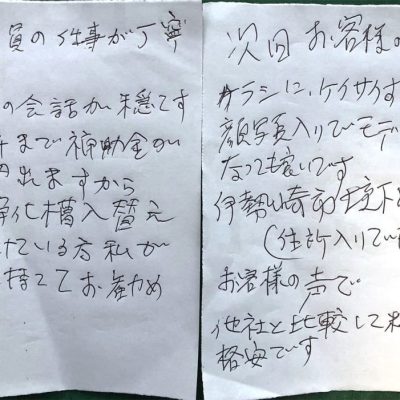 員の仕事が丁寧
の会話が穏です
まで補助金の
出れますから
浄化槽入替え
ている方私が
持ててお勧め
次回 お客様の
チラシに、ケイサイす
顔写真入りでモデ
なっても良いです
伊勢崎市境下
(住所入りで
お客様の声で
他社と比較して
格安です